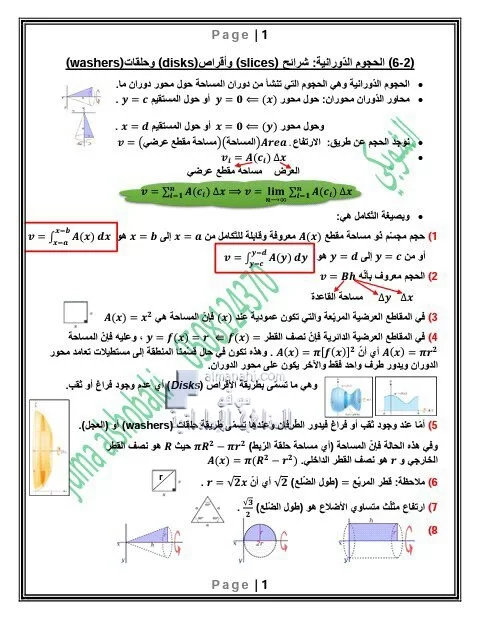 Page | 1
(6-2) الحجوم الدورانية: شرائح (slices) وأقراص(disks) وحلقات(washers)
• الحجوم الدورانية وهي الحجوم التي تنشأ من دوران المساحة حول محور دوران ما.
• محاور الدوران محوران: حول محور (x) ⟸ y = 0 أو حول المستقيم y = c .
وحول محور (y) ⟸ x = 0 أو حول المستقيم x = d .
• نوجد الحجم عن طريق: الارتفاع. Area(المساحة)(مساحة مقطع عرضي) = v
• vᵢ = A(cᵢ) Δx
العرض مساحة مقطع عرضي
v = ∑ⁿᵢ₌₁ A(cᵢ) Δx ⟹ v = lim n→∞ ∑ⁿᵢ₌₁ A(cᵢ) Δx
• وبصيغة التكامل هي:
1) حجم مجسّم ذو مساحة مقطع A(x) معروفة وقابلة للتكامل من x = a إلى x = b هو v = ∫ˣ⁼ᵇₓ₌ₐ A(x) dx
أو من y = c إلى y = d هو v = ∫_{y=c}^{y=d} A(y) dy
2) الحجم معروف بأنّه v = Bh
Δy Δx مساحة القاعدة
3) في المقاطع العرضية المربّعة والتي تكون عمودية عند (x) فإنّ المساحة هي A(x) = x²
4) في المقاطع العرضية الدائرية فإنّ نصف القطر = y = f(x) = r ⟸ f(x) ، وعليه فإنّ المساحة
A(x) = πr² أي أنّ A(x) = π[f(x)]² . وهذه تكون في حال قسّمنا المنطقة إلى مستطيلات تعامد محور
الدوران ويدور طرف واحد فقط والآخر يكون على محور الدوران.
وهي ما تسمّى بطريقة الأقراص (Disks) أي عدم وجود فراغ أو ثقب.
5) أمّا عند وجود ثقب أو فراغ فيدور الطرفان وعندها تسمّى طريقة حلقات (washers) أو (العجل).
وفي هذه الحالة فإنّ المساحة (أي مساحة حلقة الرّبط) πR² − πr² حيث R هو نصف القطر
الخارجي و r هو نصف القطر الداخلي. A(x) = π(R² − r²)
6) ملاحظة: قطر المربّع = (طول الضّلع) √2 أي أنّ r = √2x .
7) ارتفاع مثلّث متساوي الأضلاع هو (طول الضّلع) √3/2 .
8)
juma alshobaki 0508124370
almanahj.com
موقع
المناهج الإماراتية
Page | 1